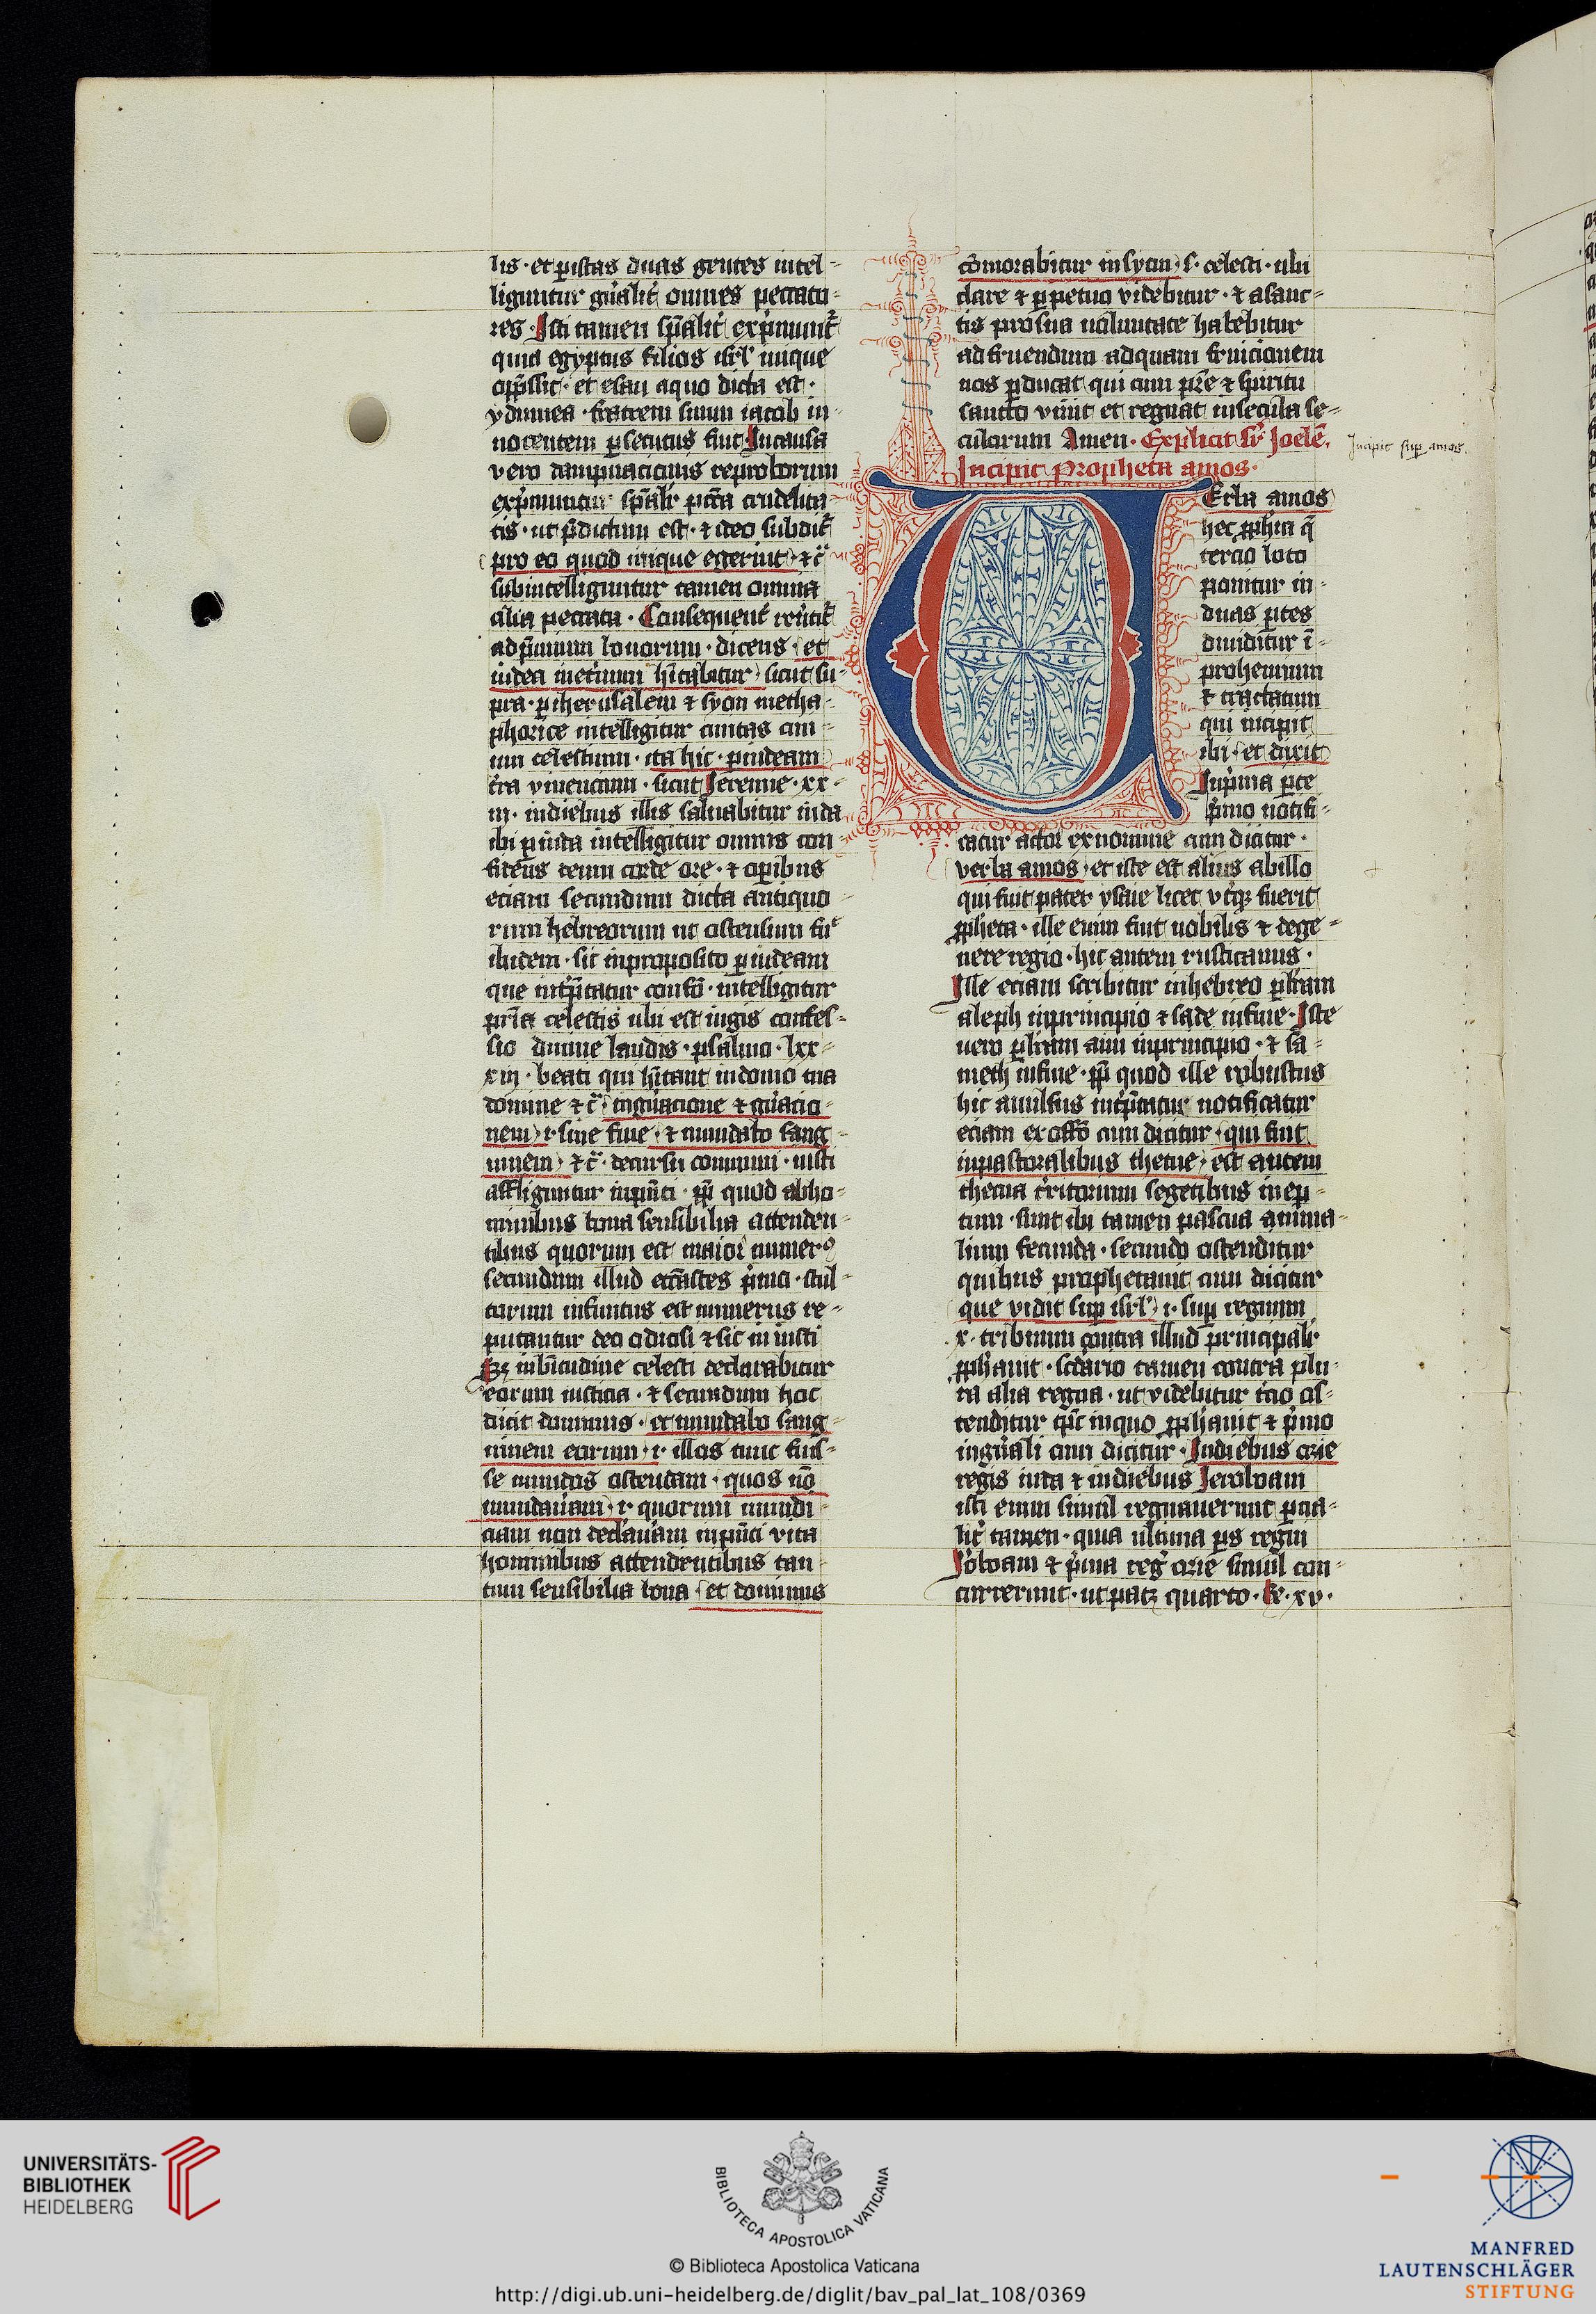 lis · et p istas duas gentes intel-
liguntur gnalit omnes peccato-
res · Isti tamen spalit exprimunt
quia egyptus filios isrl inique
oppssit · et esau a quo dicta est ·
ydumea · fratrem suum iacob in-
nocentem psecutus fuit In causa
vero dampnacionis reproborum
exprimuntur spalit pcca crudelita-
tis · ut pdictum est · et ideo subdit
pro eo quod inique egerint et c
subintelliguntur tamen omnia
alia peccata · Consequent revtit
ad pmium bonorum · dicens · et
iudea ineternum hitabitur sicut su-
pra · p iherusalem et syon metha-
phorice intelligitur ciuitas ciui-
um celestium · ita hic · p iudeam
tra viuencium · sicut Jeremie · xx-
iii · in diebus illis saluabitur iuda
ibi p iuda intelligitur omnis con-
fitens deum corde ore · et opibus
eciam secundum dicta antiquo-
rum hebreorum ut ostensum fu
ibidem · sic in proposito p iudeam
que intptatur confo · intelligitur
pria celestis ubi est iugis confes-
sio diuine laudis · psalmo · lxx-
xiii · beati qui hitant in domo tua
domine et c in gnacione et gnacio-
nem · i · sine fine · et mundabo sang-
uinem et c · decursu communi · iusti
affliguntur in pnti · pp quod ab ho-
minibus bona sensibilia attenden-
tibus quorum est maior numero
secundum illud ecclastes primo · stul-
torum infinitus est numerus re-
putantur deo odiosi et sic in iusti
Sz in btitudine celesti declarabitur
eorum iusticia · et secundum hoc
dicit dominus · et mundabo sang-
uinem eorum · i · illos tunc fuis-
se mundos ostendam · quos no
mundauam · i · quorum mundi-
ciam non declauam in pnti vita
hominibus attendentibus tan-
tum sensibilia bona · et dominus
comorabitur in syon s · celesti · ubi
clare et ppetuo videbitur · et a sanc-
tis pro sua uoluntate habebitur
ad fruendum ad quam fruicionem
nos pducat qui cum pre et spiritu
sancto viuit et regnat in secula se-
culorum Amen · Explicit sr Joele
Incipit sup amos
Incipit Propheta amos ·
UErba amos
hec pphia q
tercio loco
ponitur in
duas ptes
diuiditur i-
prohemium
et tractatum
qui incipit
ibi · et dixit
In pma pte
pmo notifi-
catur actor ex nomine cum dicitur ·
verba amos · et iste est alius ab illo
qui fuit pater ysaie licet vtqz fuerit
ppheta · ille enim fuit nobilis et de ge-
nere regio · hic autem rusticanus ·
Ille eciam scribitur in hebreo p lram
aleph in principio et sade in fine · Iste
uero p lram ain in principio · et sa-
meth in fine · pp quod ille robustus
hic auulsus intptatur notificatur
eciam ex offo cum dicitur · qui fuit
in pastoralibus thecue · est autem
thecua tritorium segetibus inep-
tum · sunt ibi tamen pascua anima-
lium fecunda · secundo ostenditur
quibus prophetauit cum dicitur
que vidit sup isrl · i · sup regnum
x · tribuum contra illud principalit
pphauit · scdario tamen contra plu-
ra alia regna · ut videbitur tcio os-
tenditur tps in quo pphauit et pmo
in gnali cum dicitur · In diebus ozie
regis iuda et in diebus Jeroboam
isti enim simul regnauerunt pcia-
lit tamen · quia ultima ps regni
Joboam et pma reg ozie simul con-
currerunt · ut patz quarto · Re · xv ·
UNIVERSITÄTS-
BIBLIOTHEK
HEIDELBERG
BIBLIOTECA APOSTOLICA VATICANA
© Biblioteca Apostolica Vaticana
http://digi.ub.uni-heidelberg.de/diglit/bav_pal_lat_108/0369
MANFRED
LAUTENSCHLÄGER
STIFTUNG